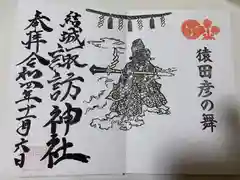 猿田彦の舞
結城
諏訪神社
奉拝
令和四年十一月六日